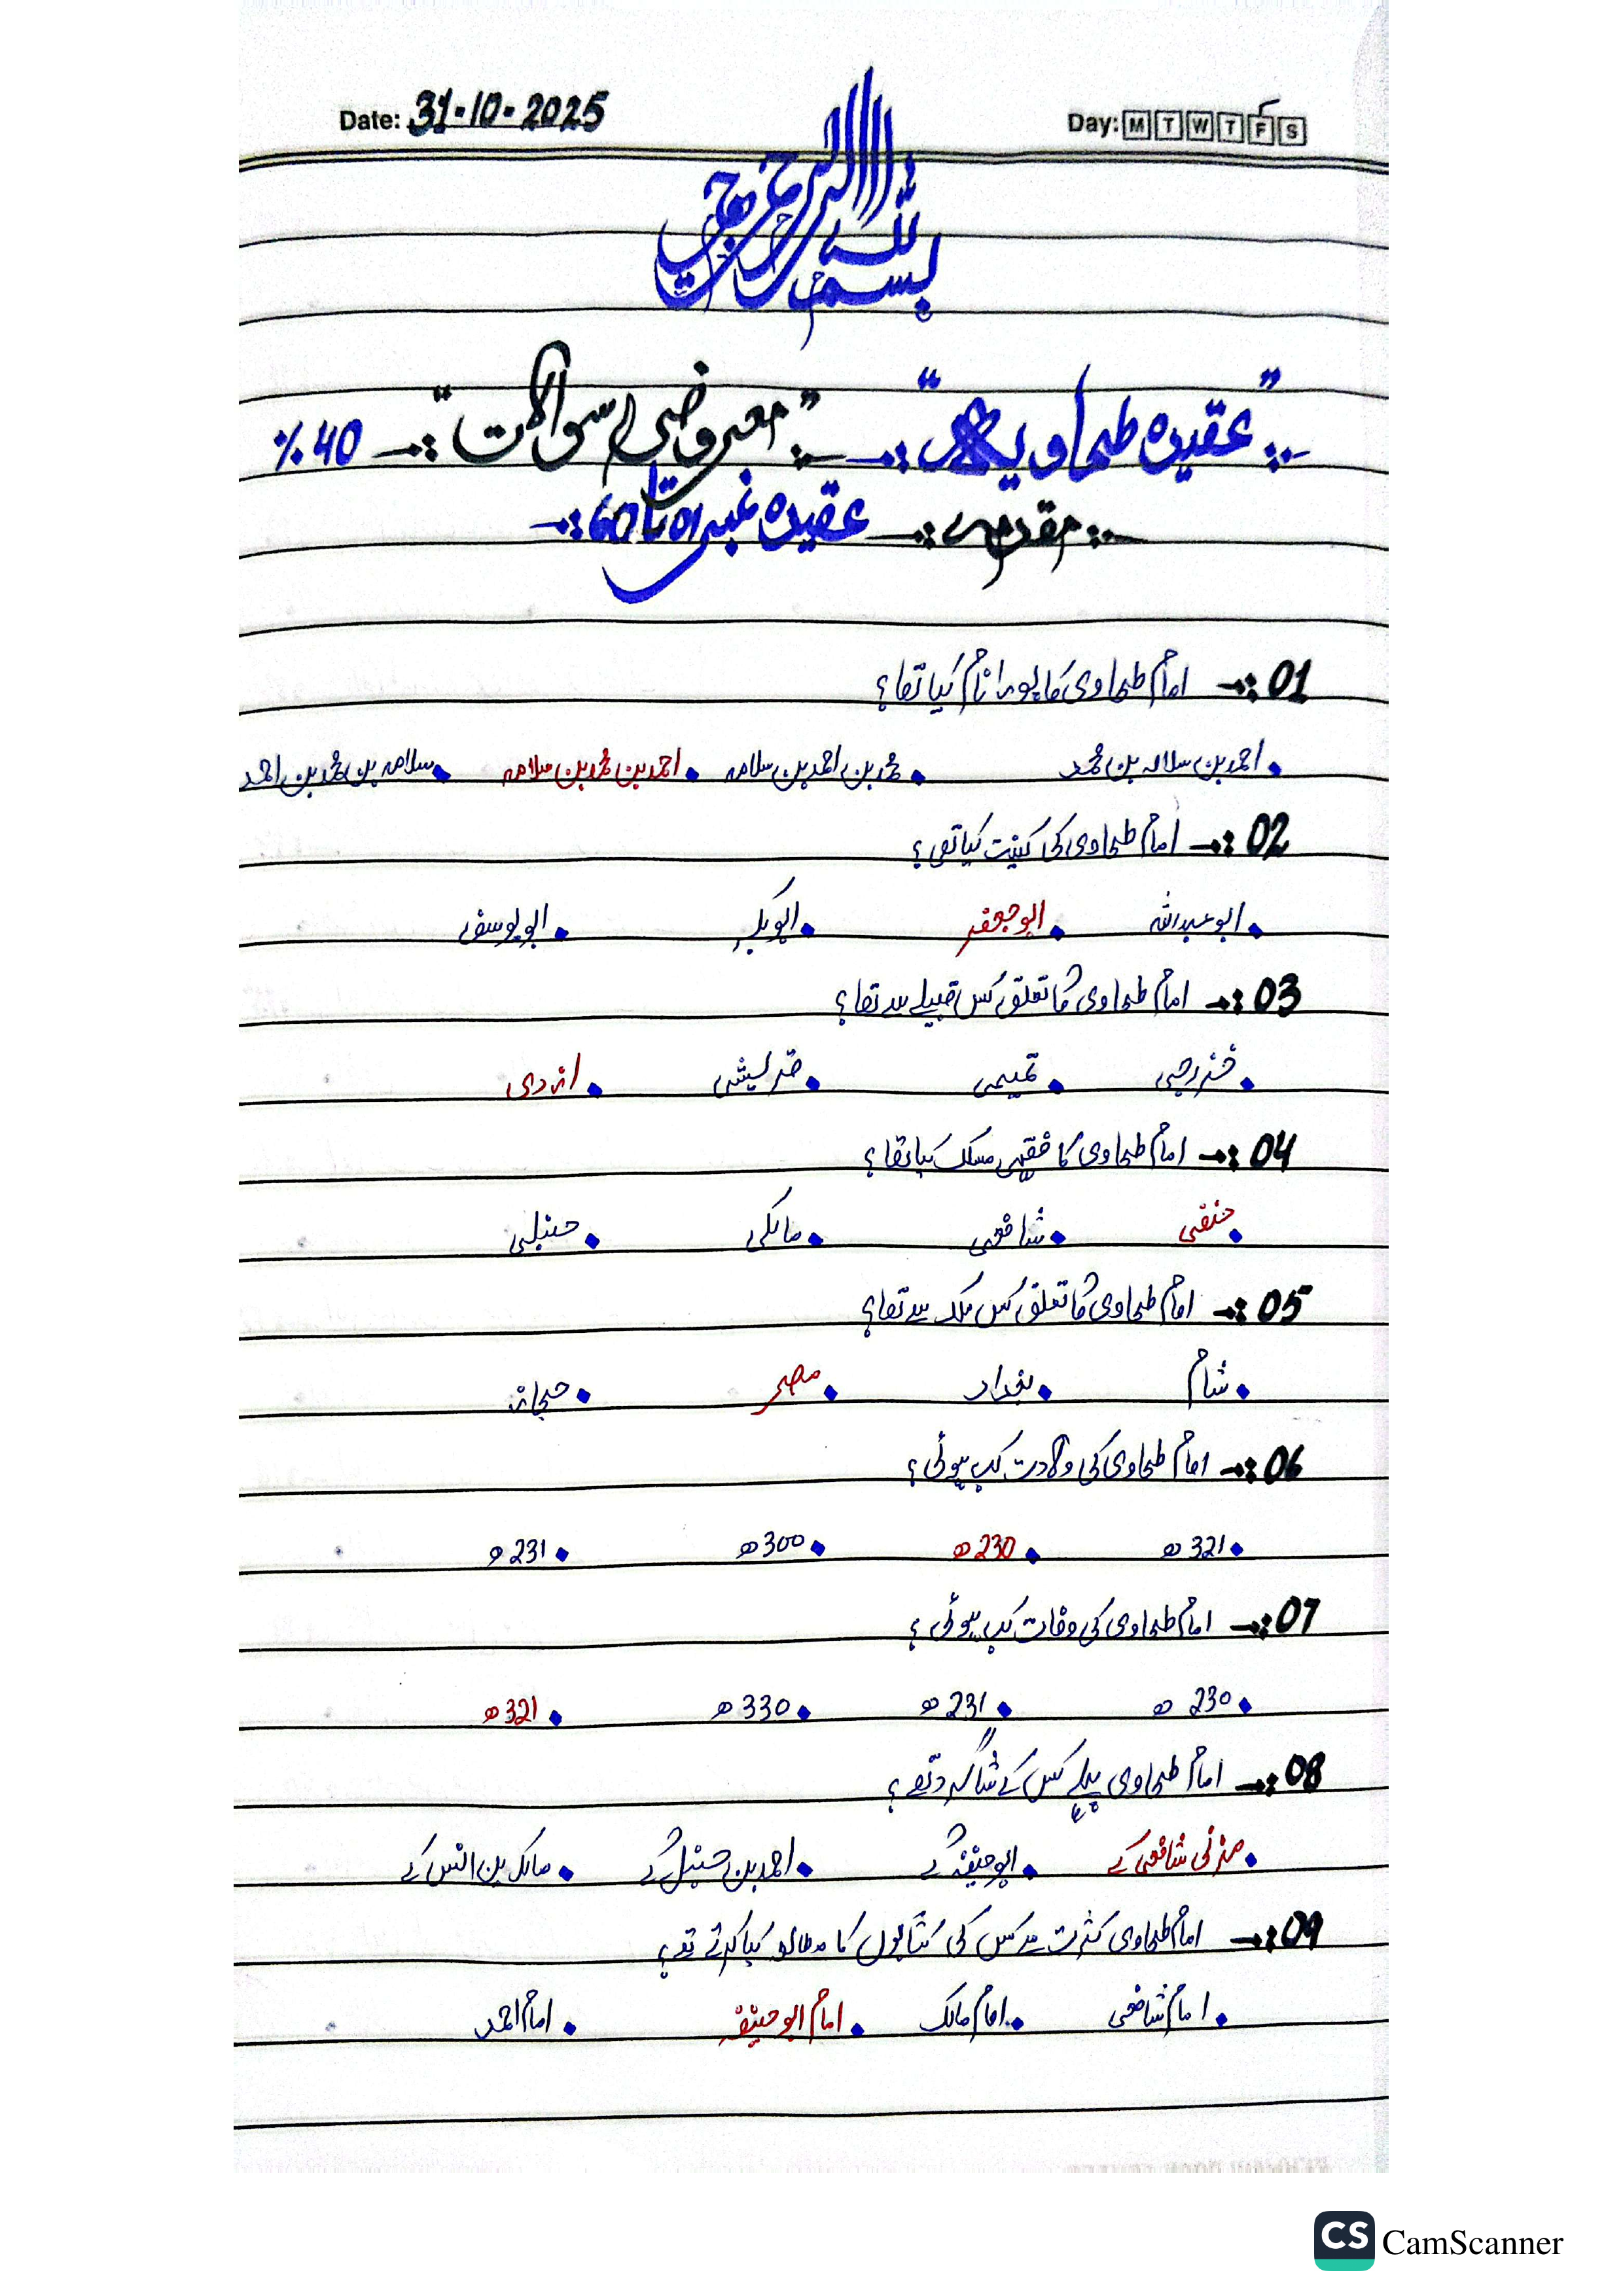 Date: 31-10-2025 Day: M T W T F S
بسم اللہ الرحمن الرحیم
"عقیدہ طحاویہ" :→ "معروضی سوالات" :→ 40 %
مقدمہ :→ عقیدہ نمبر 01 تا 60 :→
01 :→ امام طحاوی کا پورا نام کیا تھا؟
• احمد بن سلامہ بن محمد • محمد بن احمد بن سلامہ • احمد بن محمد بن سلامہ • سلامہ بن محمد بن احمد
02 :→ امام طحاوی کی کنیت کیا تھی؟
• ابو عبداللہ • ابو جعفر • ابوبکر • ابو یوسف
03 :→ امام طحاوی کا تعلق کس قبیلے سے تھا؟
• خزرجی • تمیمی • قریشی • ازدی
04 :→ امام طحاوی کا فقہی مسلک کیا تھا؟
• حنفی • شافعی • مالکی • حنبلی
05 :→ امام طحاوی کا تعلق کس ملک سے تھا؟
• شام • بغداد • مصر • حجاز
06 :→ امام طحاوی کی ولادت کب ہوئی؟
• 321ھ • 230ھ • 300ھ • 231ھ
07 :→ امام طحاوی کی وفات کب ہوئی؟
• 230ھ • 231ھ • 330ھ • 321ھ
08 :→ امام طحاوی پہلے کس کے شاگرد تھے؟
• مزنی شافعی کے • ابو حنیفہ کے • احمد بن حنبل کے • مالک بن انس کے
09 :→ امام طحاوی کثرت سے کس کی کتابوں کا مطالعہ کیا کرتے تھے؟
• امام شافعی • امام مالک • امام ابو حنیفہ • امام احمد
CS CamScanner